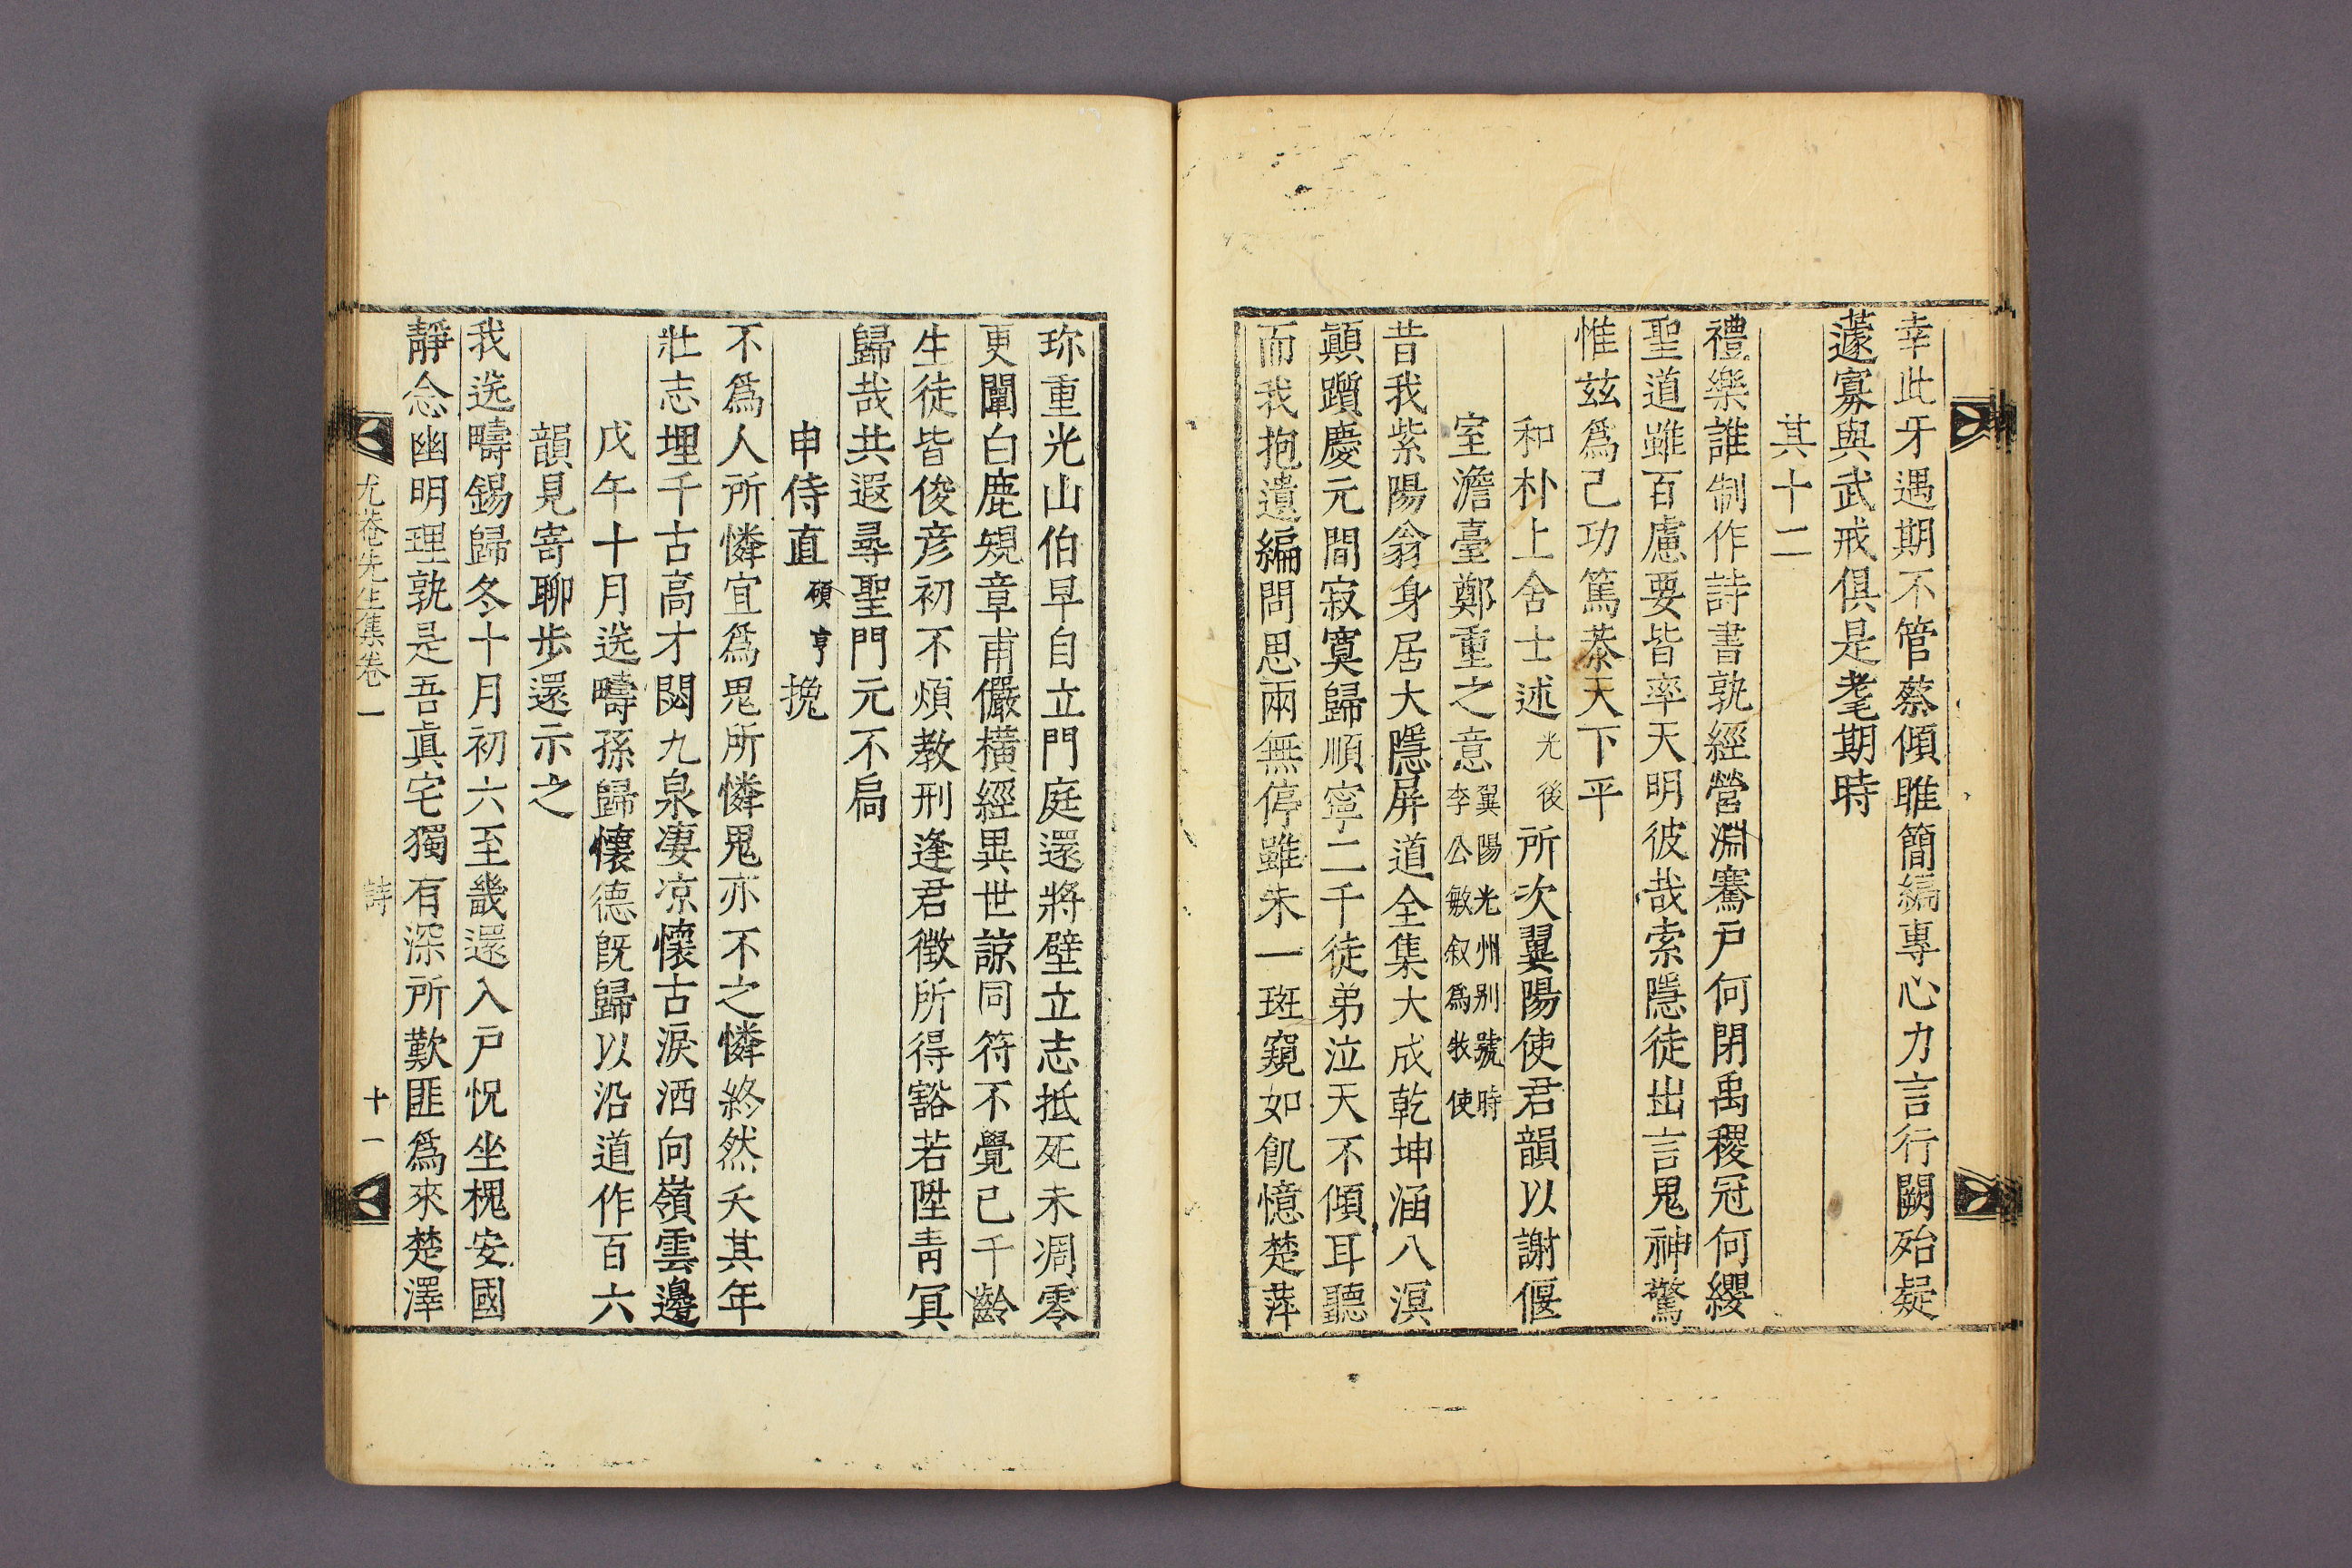 幸此牙遇期不管蔡傾睢簡編專心力言行闕殆疑
蘧寡與武戒俱是耄期時
其十二
禮樂誰制作詩書孰經營淵騫戶何閉禹稷冠何纓
聖道雖百慮要皆率天明彼哉索隱徒出言鬼神驚
惟玆爲己功篤恭天下平
和朴上舍士述光後所次翼陽使君韻以謝偃
室澹臺鄭重之意翼陽光州別號時李公敏叙爲牧使
昔我紫陽翁身居大隱屛道全集大成乾坤涵八溟
顚躓慶元間寂寞歸順寧二千徒弟泣天不傾耳聽
而我抱遺編問思兩無停雖未一斑窺如飢憶楚萍
珎重光山伯早自立門庭還將壁立志抵死未凋零
更闡白鹿䂓章甫儼橫經異世諒同符不覺已千齡
生徒皆俊彦初不煩敎刑逢君徵所得豁若陞靑冥
歸哉共遐尋聖門元不扃
申侍直碩亨挽
不爲人所憐宜爲鬼所憐鬼亦不之憐終然夭其年
壯志埋千古高才閟九泉凄凉懷古淚洒向嶺雲邊
戊午十月送疇孫歸懷德旣歸以沿道作百六
韻見寄聊步還示之
我送疇錫歸冬十月初六至畿還入戶怳坐槐安國
靜念幽明理孰是吾眞宅獨有深所歎匪爲來楚澤
尤菴先生集卷一 詩 十一